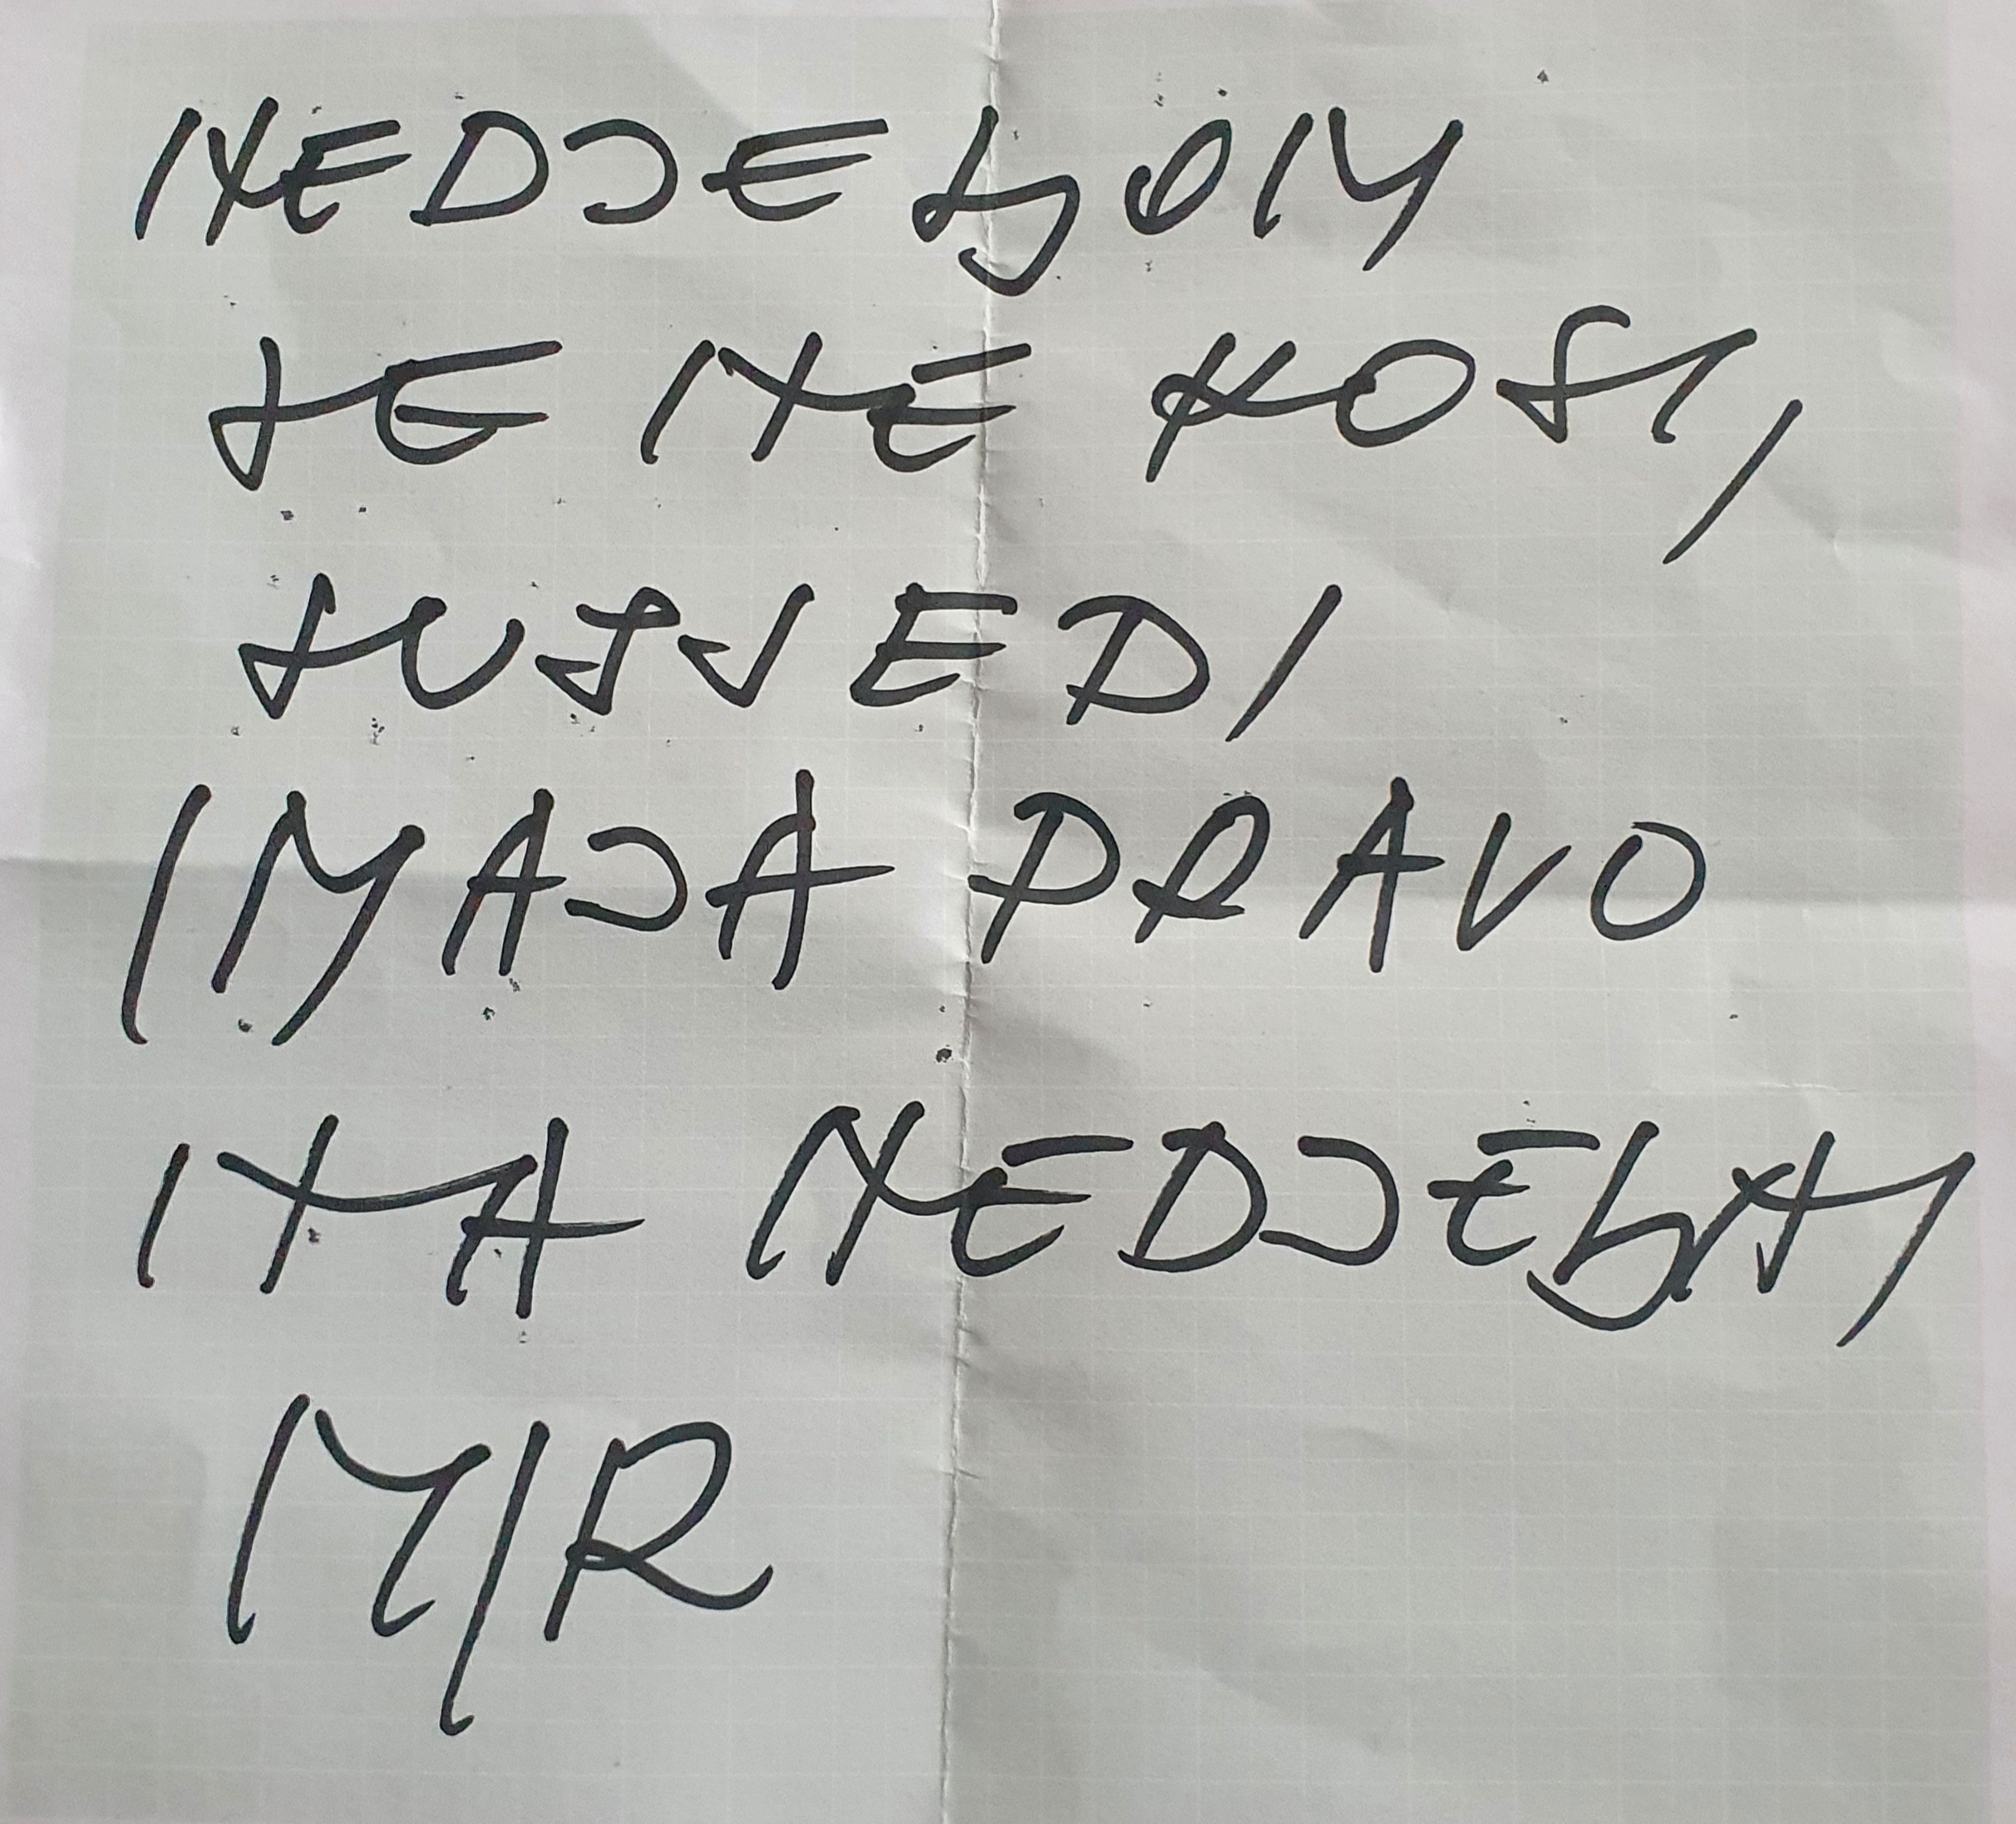 NEDJEљOM
SE NE KOSI,
SUSJEDI
IMAJA PRAVO
NA NEDJEљNI
MIR